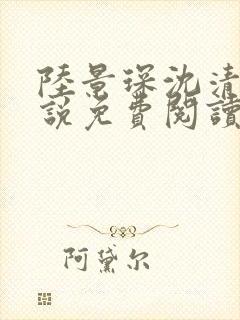 陸景琛沈清
說免費閱讀
阿黛尔